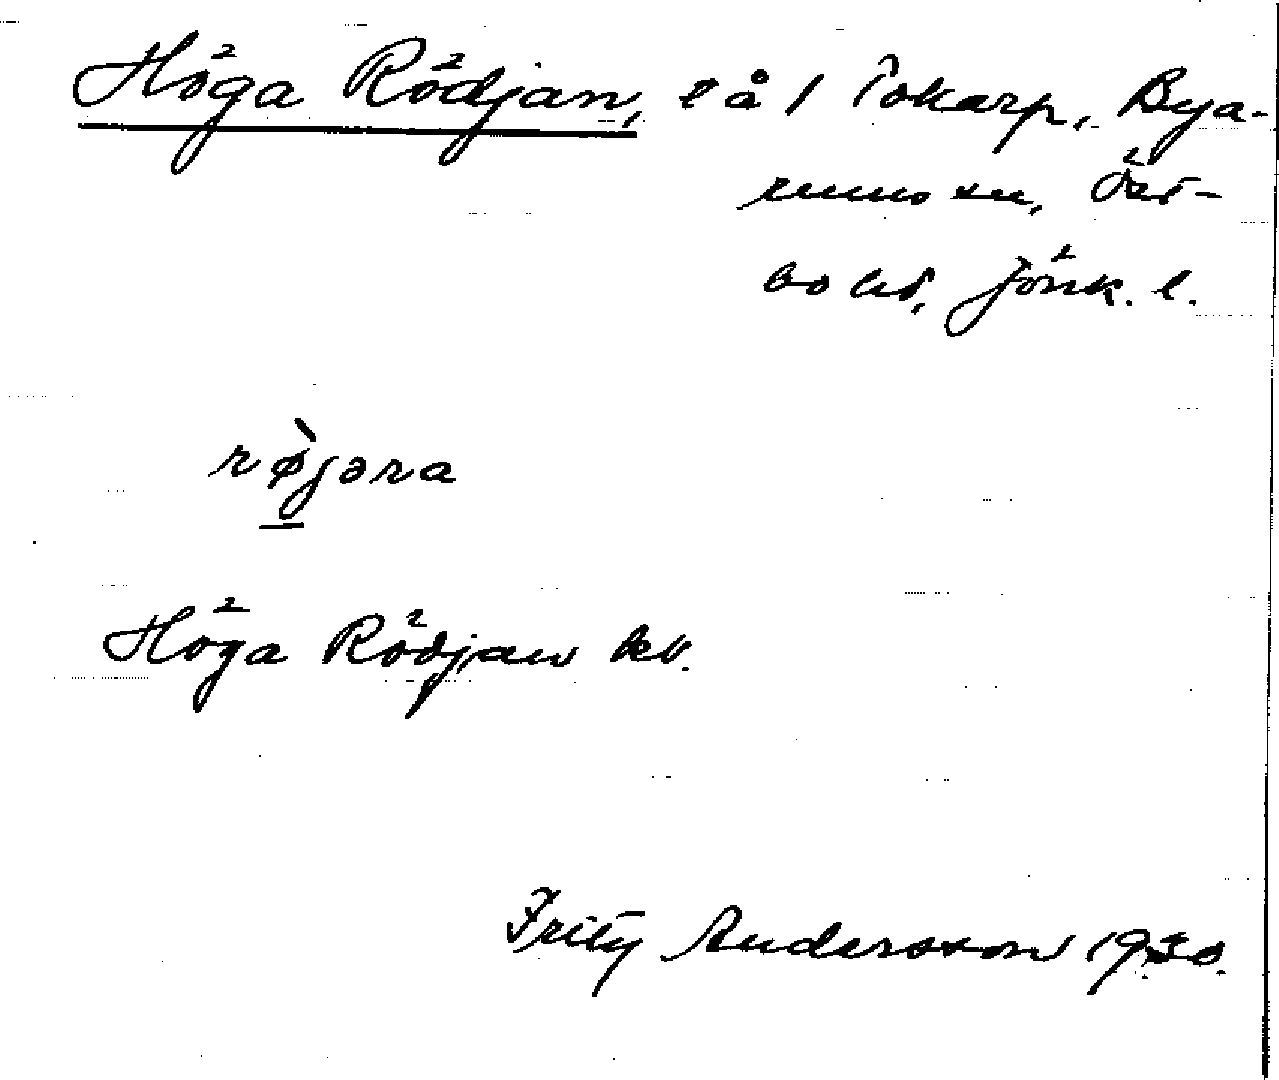 Höga Rödjan, l å / Tokarp, Bya-
rums sn, Öst-
bo hd, Jönk. l.
rø̀jəra
Höga Rödjan bv.
Fritz Andersson 1930.